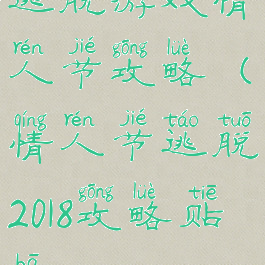 逃脱游戏情
rén jié gōng lüè
人节攻略（
qíng rén jié táo tuō
情人节逃脱
gōng lüè tiē
2018攻略贴
bā